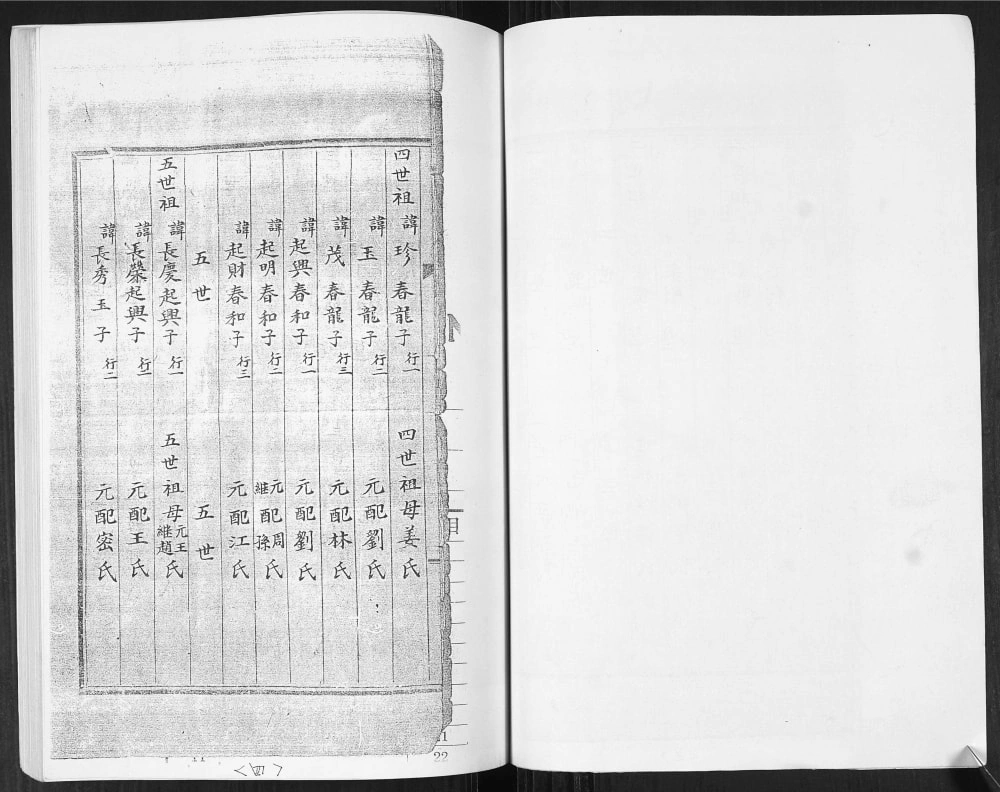 四世祖 諱珍 春龍子 行一 四世祖母姜氏
諱玉 春龍子 行二 元配劉氏
諱茂 春龍子 行三 元配林氏
諱起興春和子 行一 元配劉氏
諱起明春和子 行二 元配周 継孫氏
諱起財春和子 行三 元配江氏
五世 五世
五世祖 諱長慶起興子 行一 五世祖母元王継趙氏
諱長榮起興子 行二 元配王氏
諱長秀玉子 行二 元配密氏
22